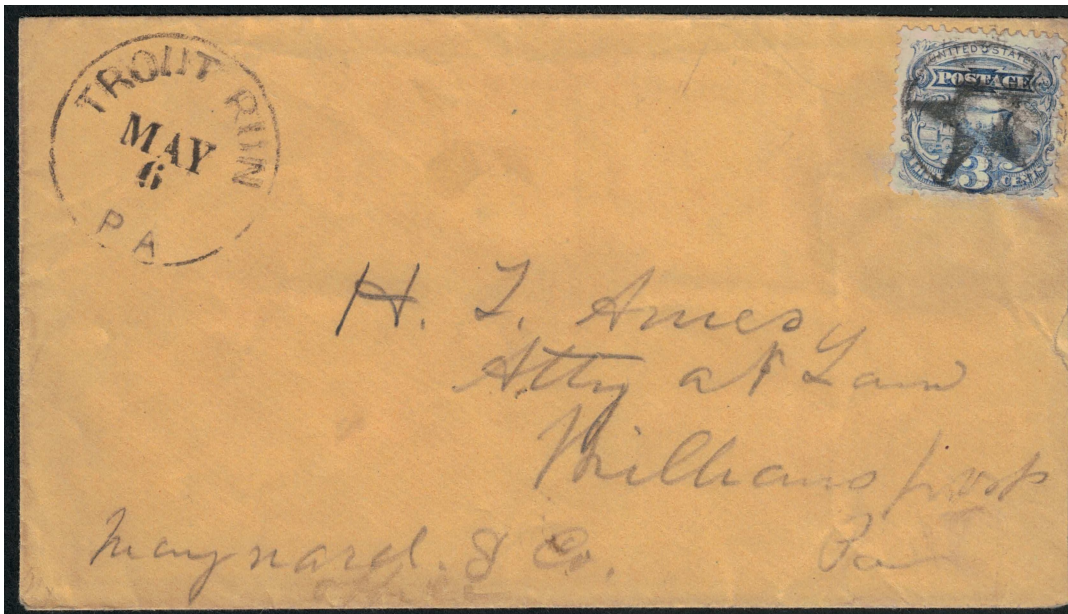 TROUT RUN
MAY
6
PA
UNITED STATES
POSTAGE
3 CENTS
H. T. Ames
Atty at Law
Williamsport
Pa
Maynard. & Co.